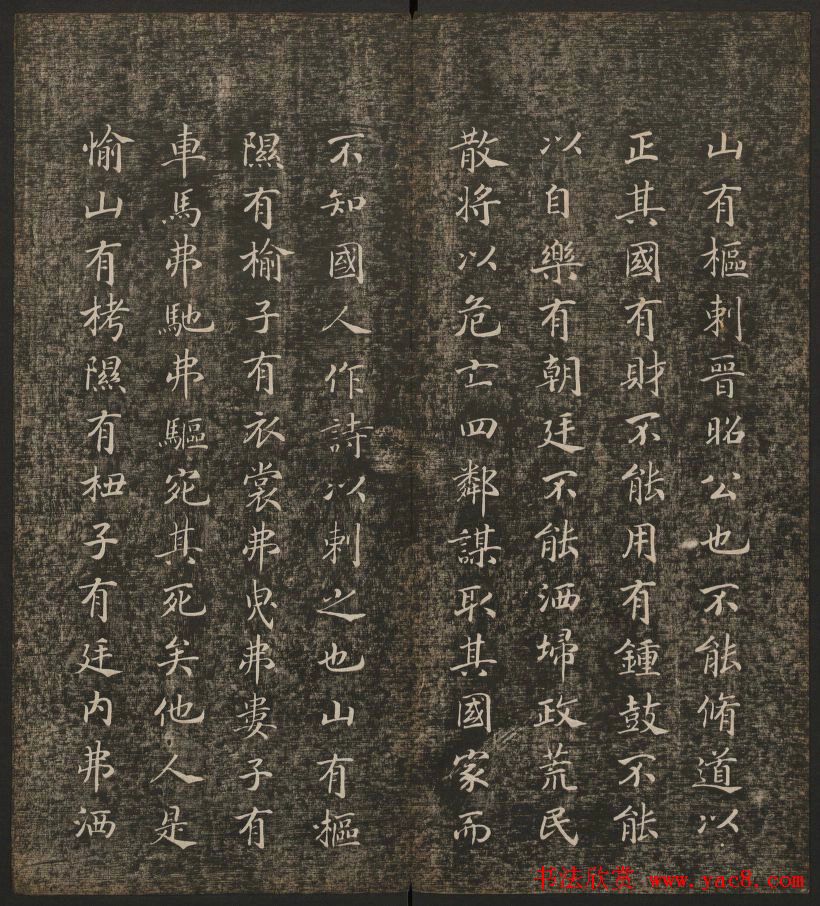 山有樞刺晉昭公也不能脩道以
正其國有財不能用有鍾鼓不能
以自樂有朝廷不能洒埽政荒民
散将以危亡四鄰謀取其國家而
不知國人作詩以刺之也山有樞
隰有榆子有衣裳弗曳弗婁子有
車馬弗馳弗驅宛其死矣他人是
愉山有栲隰有杻子有廷内弗洒
书法欣赏 www.yac8.com